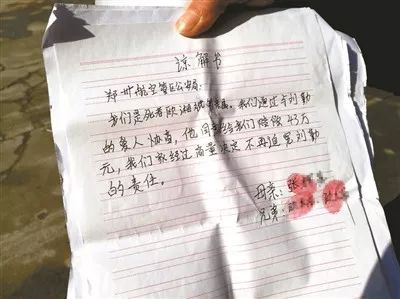 谅解书
郑州航空港区公安局:
我们是死者欧 的家属。我们通过与刘勤
的家人协商,他同意给我们赔偿43万
元,我们家经过商量决定不再追究刘勤
的责任。
母亲:张
兄弟:欧